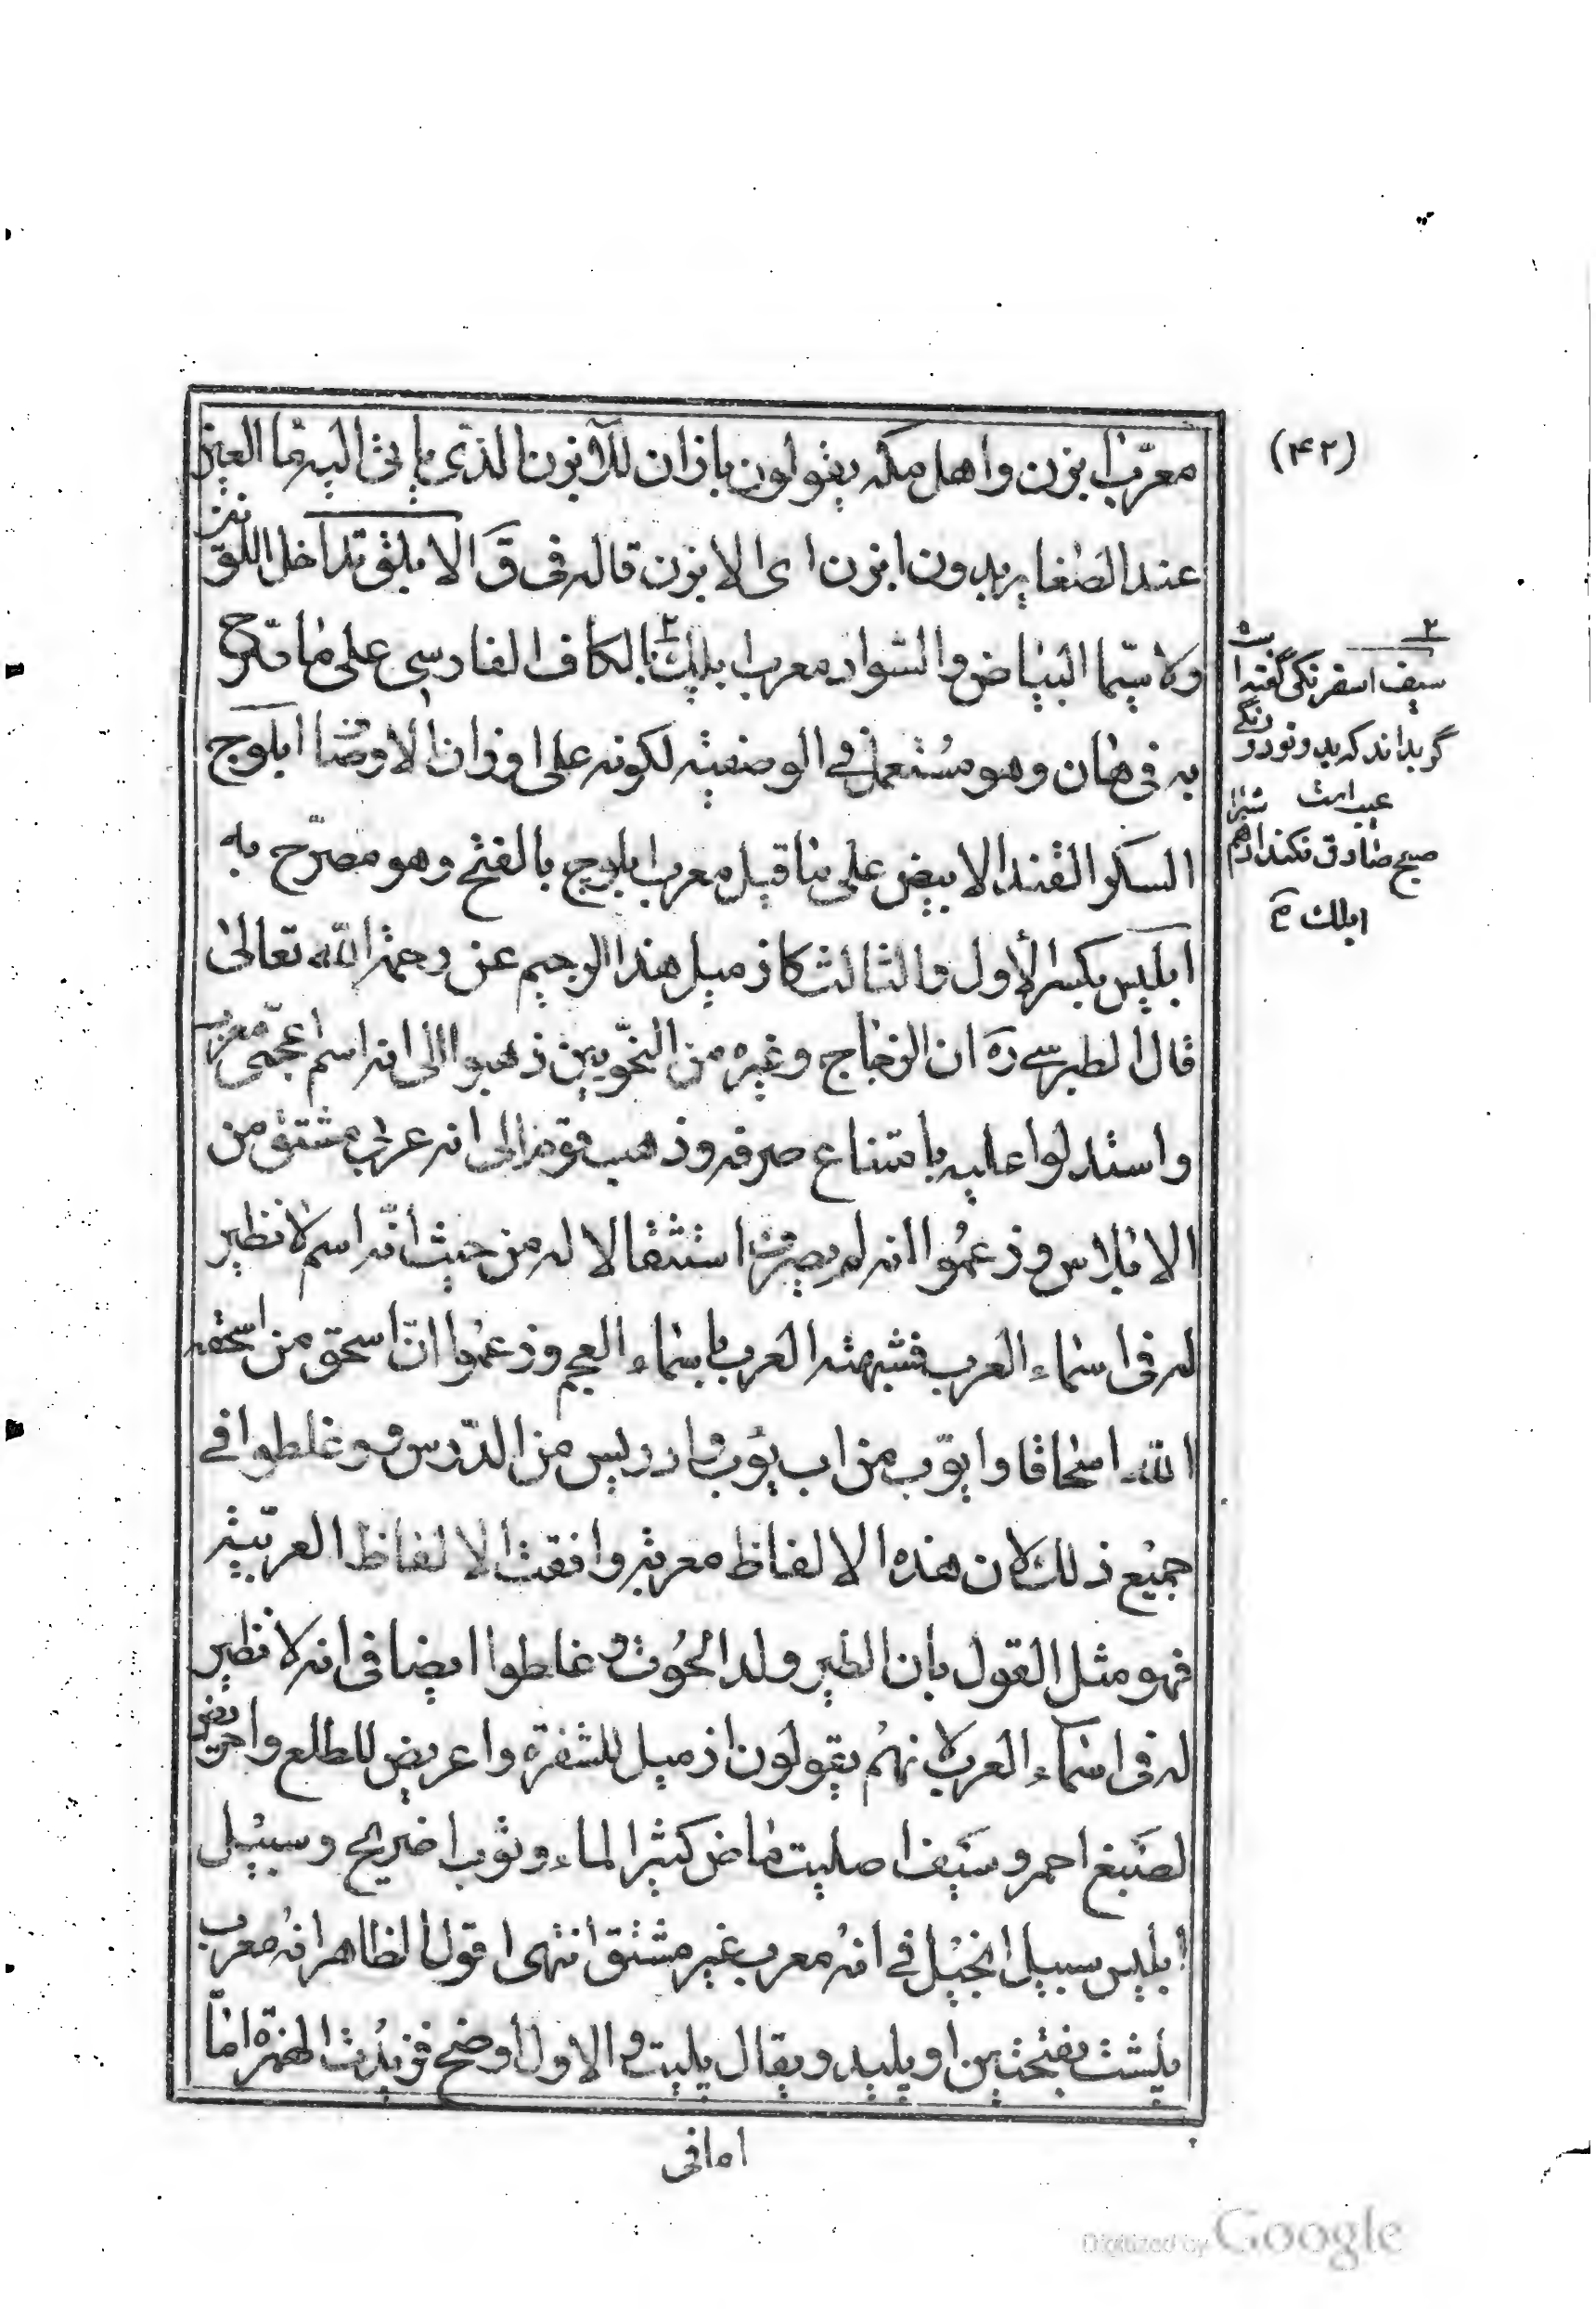 (۴۲)
معرّب ابزن واهل مكه يقولون بازان للآبزن الذى ياتى اليه ماء العين
عند الصفا يريدون ابزن اى الابزن قاله فى ق الابلق تداخل اللونين
ولا سيّما البياض والسّواد معرب ابلك بالكاف الفارسى على ما صرّح
به فى هان وهو مستعمل فى الوصفيته لكونه على اوزان الاوصاف ابلوج
السكر القند الابيض على ما قيل معرب ابلوج بالفتح وهو مصرّح به
ابليس بكسر الأول والثالث كازميل هذا الرجيم عن رحمة الله تعالى
قال الطبرسے ره ان الزجاج وغيره من النحّويين ذهبوا الى انه اسم اعجمّى معرب
واستدلوا عليه بامتناع صرفه وذهب قوم الى انه عربى مشتق من
الابلاس وزعموا انه لم يصرف استثقالا له من حيث انّه اسم لا نظير
له فى اسماء العرب فشبهته العرب باسماء العجم وزعموا انّ اسحق من اسحقه
الله اسحاقا وايوّب من اب يؤب وادريس من الدّرس وغلطوا فے
جميع ذلك لان هذه الالفاظ معربة وافقت الالفاظ العربيّة
فهو مثل القول بان الطير ولد الحوت وغلطوا ايضا فى انه لا نظير
له فى اسماء العرب لانهم يقولون ازميل للشفرة واعريض للطلع واحريض
لصبغ احمر وسيف اصليت ماض كثير الماء وثوب اضريج وسبيل
ابليس سبيل انجيل فے انه معرب غير مشتق انتهى اقول الظاهر انه معرب
پلشت بفتحتين او پليد ويقال پليت والاول اوضح فزيدت الهمزة امّا
امافى
۲
سيف اسفرنكى گفته
گر بداند كه بد ونود
عيب است
صبح صادق نكند ادهم
ابلك